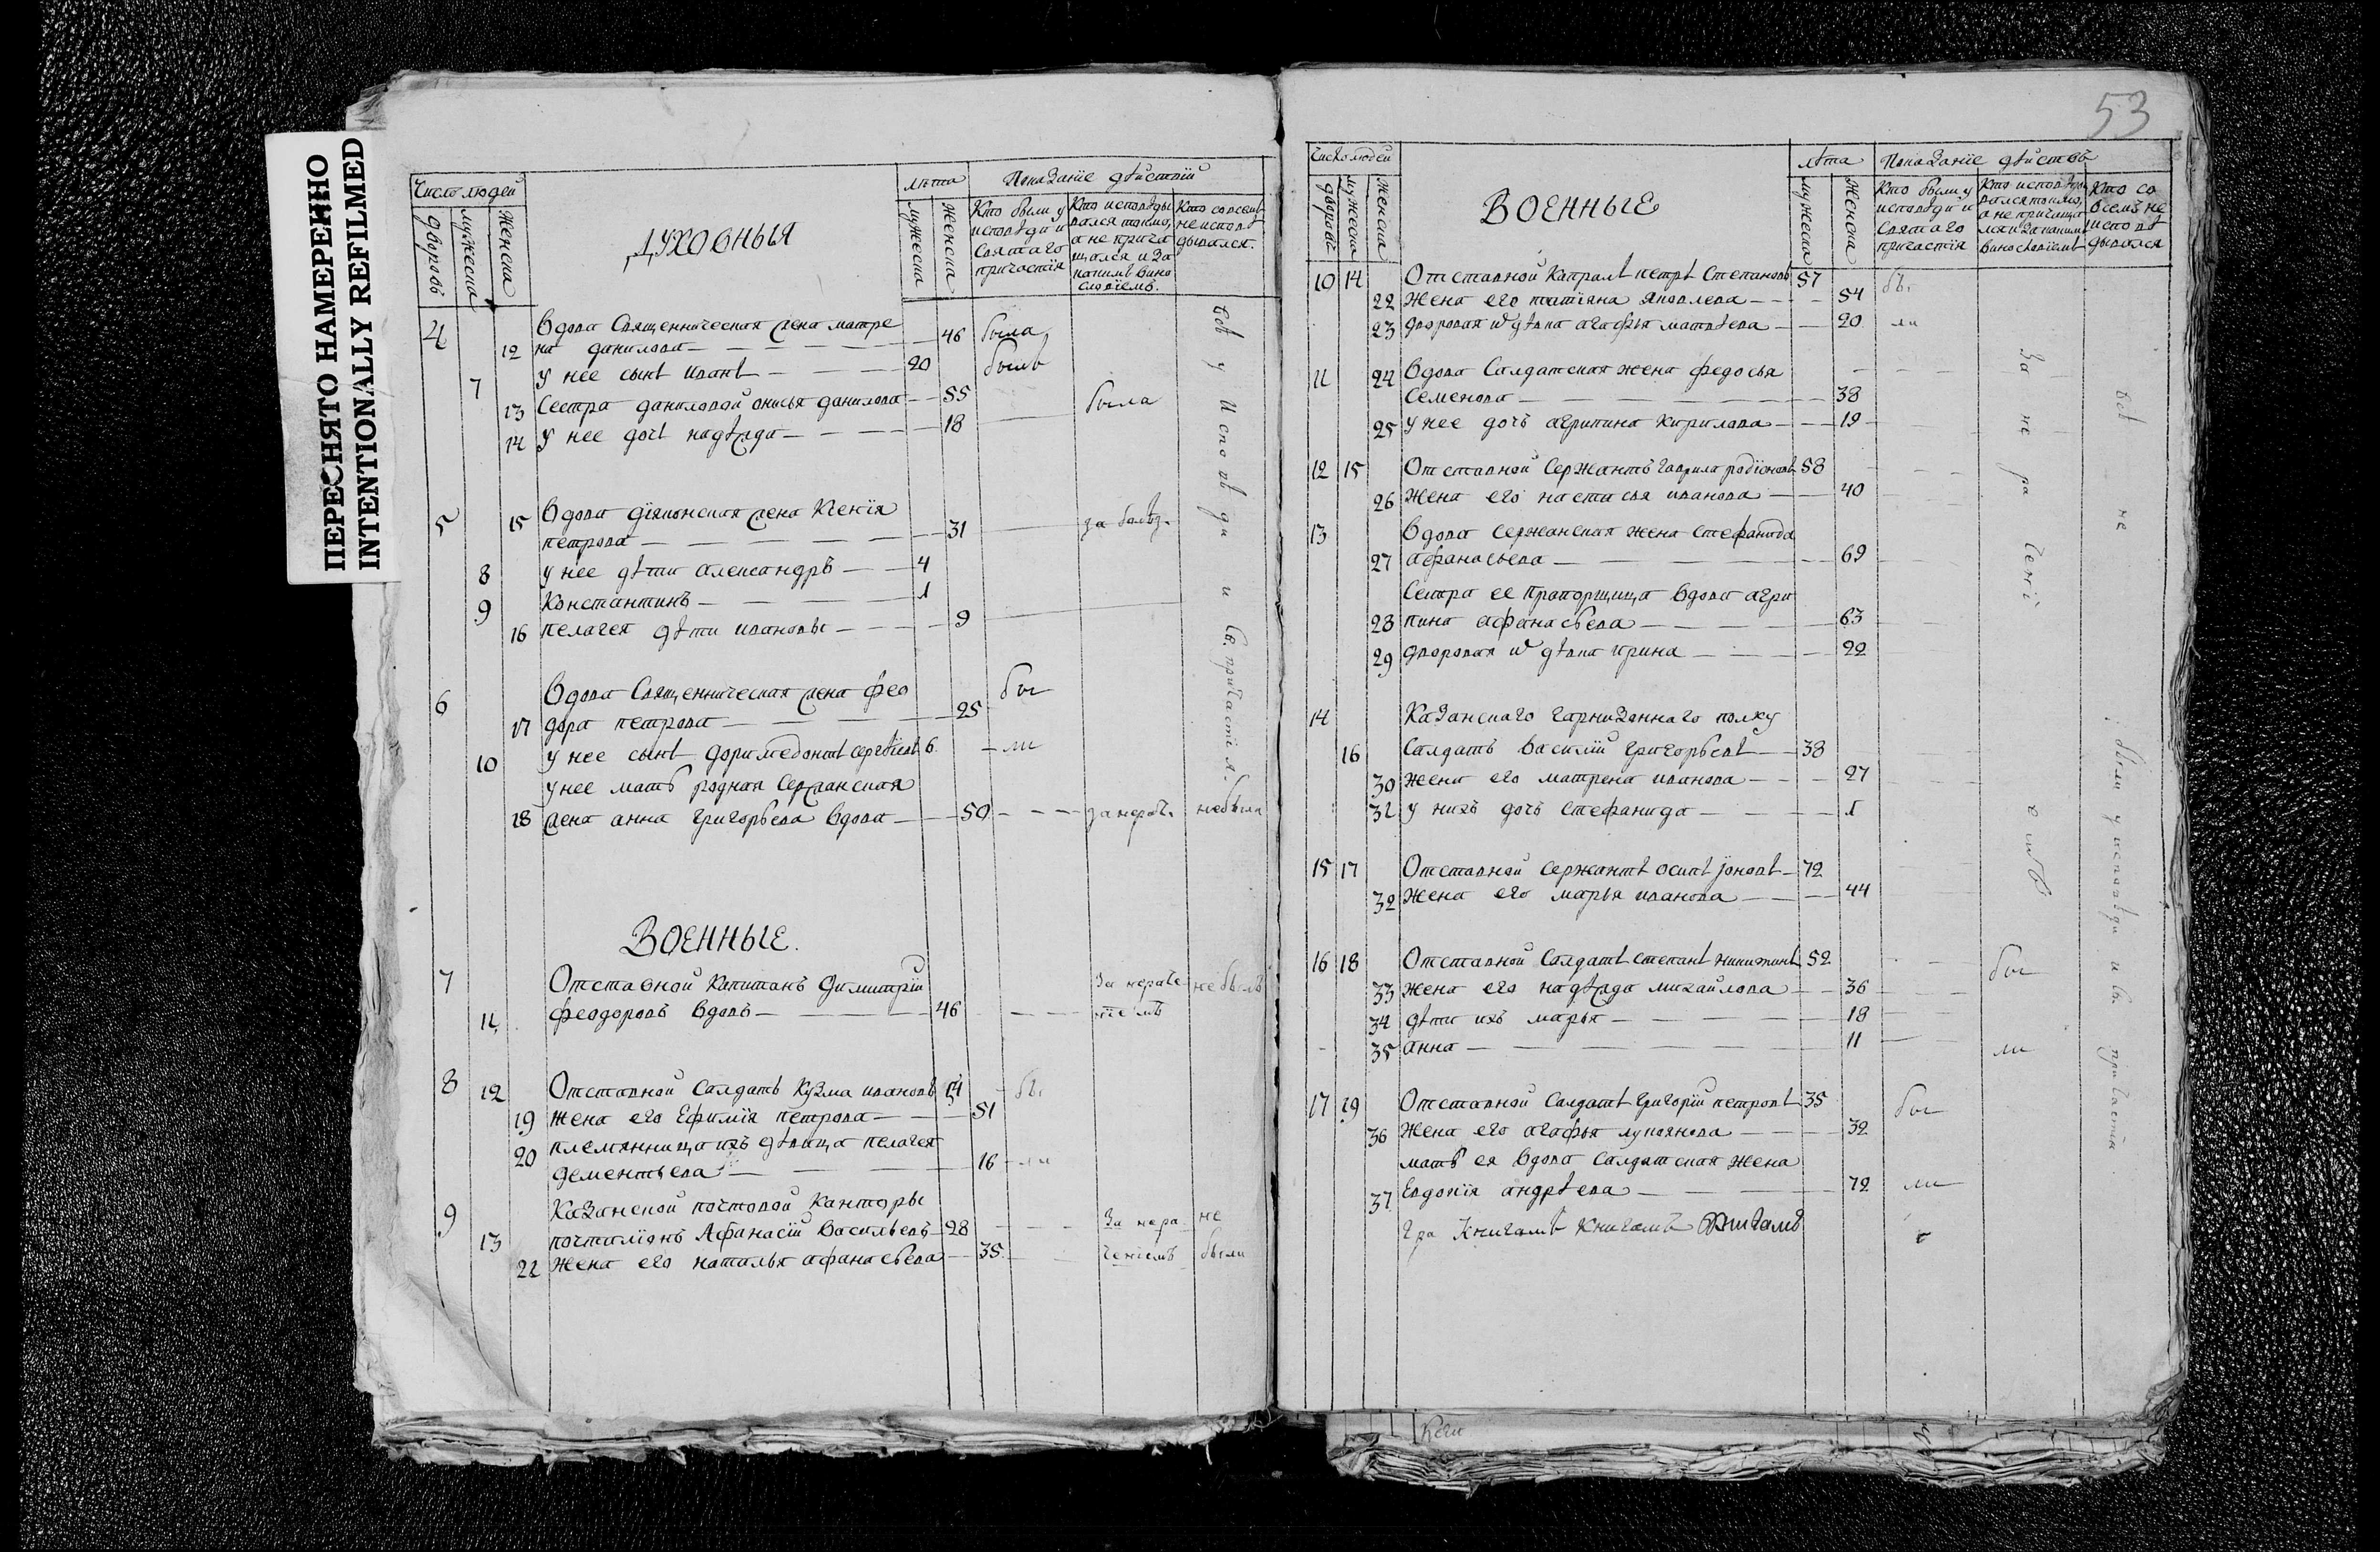 ПЕРЕСНЯТО НАМЕРЕННО
INTENTIONALLY REFILMED
Число людей
лѣта
Показание дѣйствий
дворовъ
мужеска
женска
ДУХОВНЫЯ
мужеска
женска
Кто были у исповеди и святаго причастїя
Кто исповеды вался токмо, а не прича щался и за какимъ вино словїемъ.
Кто совсемъ не исповѣ дывался.
4 Вдова Священническая жена матре
12 на данилова 46 была
7 у нее сынъ иванъ 20 былъ
13 Сестра даниловой анисья данилова 55 была
14 у нее дочь надежда 18
5 15 Вдова дїяконская жена Ксенїя
петрова 31 за болѣз.
8 у нее дѣти александръ 4
9 Константинъ 1
16 пелагея дѣти ивановы 9
6 Вдова Священническая жена фео
17 дора петрова 25 бы
10 у нее сынъ доримедонтъ сергѣевъ 6 ли
у нее мать родная сержанская
18 жена анна григорьева вдова 50 за нерач. небыла
всѣ у исповѣди и св. причастїя.
ВОЕННЫЕ.
7 Отставной капитанъ димитрїй за нераче небылъ
11 феодоровъ вдовъ 46 нїемъ
8 12 Отставной Салдатъ Кузма ивановъ 54 бы
19 жена его Ефимїя петрова 51
20 племянница ихъ дѣвица пелагея
дементьева 16 ли
9 Казанской почтовой канторы
13 почталїонъ Афанасїй Васильевъ 28 За нера не
21 жена его наталья афанасьева 35 ченїемъ были
53
Число людей
лѣта
Показанїе дѣйствъ
дворовъ
мужеска
женска
ВОЕННЫЕ
мужеска
женска
Кто были у исповѣди и святаго причастїя
Кто исповѣды вался токмо, а не причаща лся и за какимъ винословїемъ
Кто со всемъ не исповѣ дывался
10 14 Отставной Капралъ петръ Степановъ 57 бы
22 жена его татїяна яковлева 54
23 дворовая ихъ дѣвка агафья матвѣева 20 ли
11 24 Вдова Салдатская жена федосья
Семенова 38
25 у нее дочь агрипина Кирилава 19
12 15 Отставной Сержантъ гаврила родїоновъ 58
26 жена его настасья иванова 40
13 Вдова сержанская жена стефанида
27 афанасьева 69
Сестра ее прапорщица вдова агри
28 пина афанасьева 63
29 дворовая ихъ дѣвка ирина 22
14 Казанскаго гарнизоннаго полку
16 Салдатъ Василїй григорьевъ 38
30 жена его матрена иванова 27
31 у нихъ дочь стефанида 1
15 17 Отставной сержантъ осипъ їоновъ 72
32 жена его марья иванова 44
16 18 Отставной Салдатъ степанъ никитинъ 52 бы
33 жена его надежда михайлова 36
34 дѣти ихъ марья 18
35 анна 11 ли
17 19 Отставной Салдатъ григорїй петровъ 35 бы
36 жена его агафья лукоянова 32
мать ея вдова салдатская жена
37 Евдокїя андрѣева 72 ли
За нераченїемъ
всѣ не были у исповѣди и св. причастїя